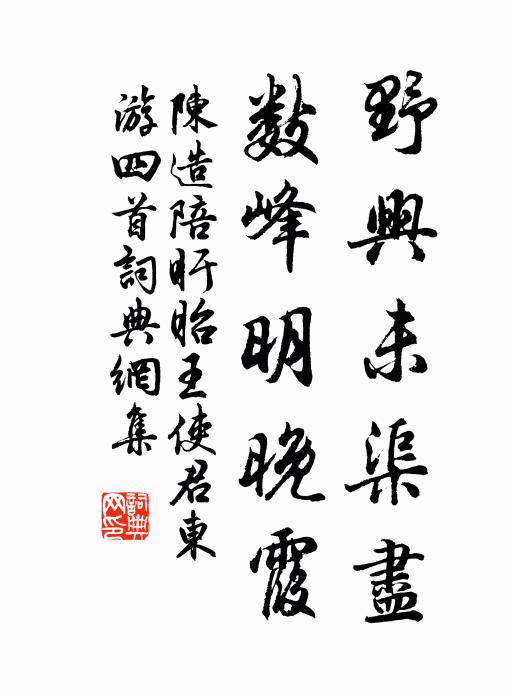 野興未渠盡
數峰明晚霞
陳造陪盱眙王使君東
游四首詞典網集
詞典
网印